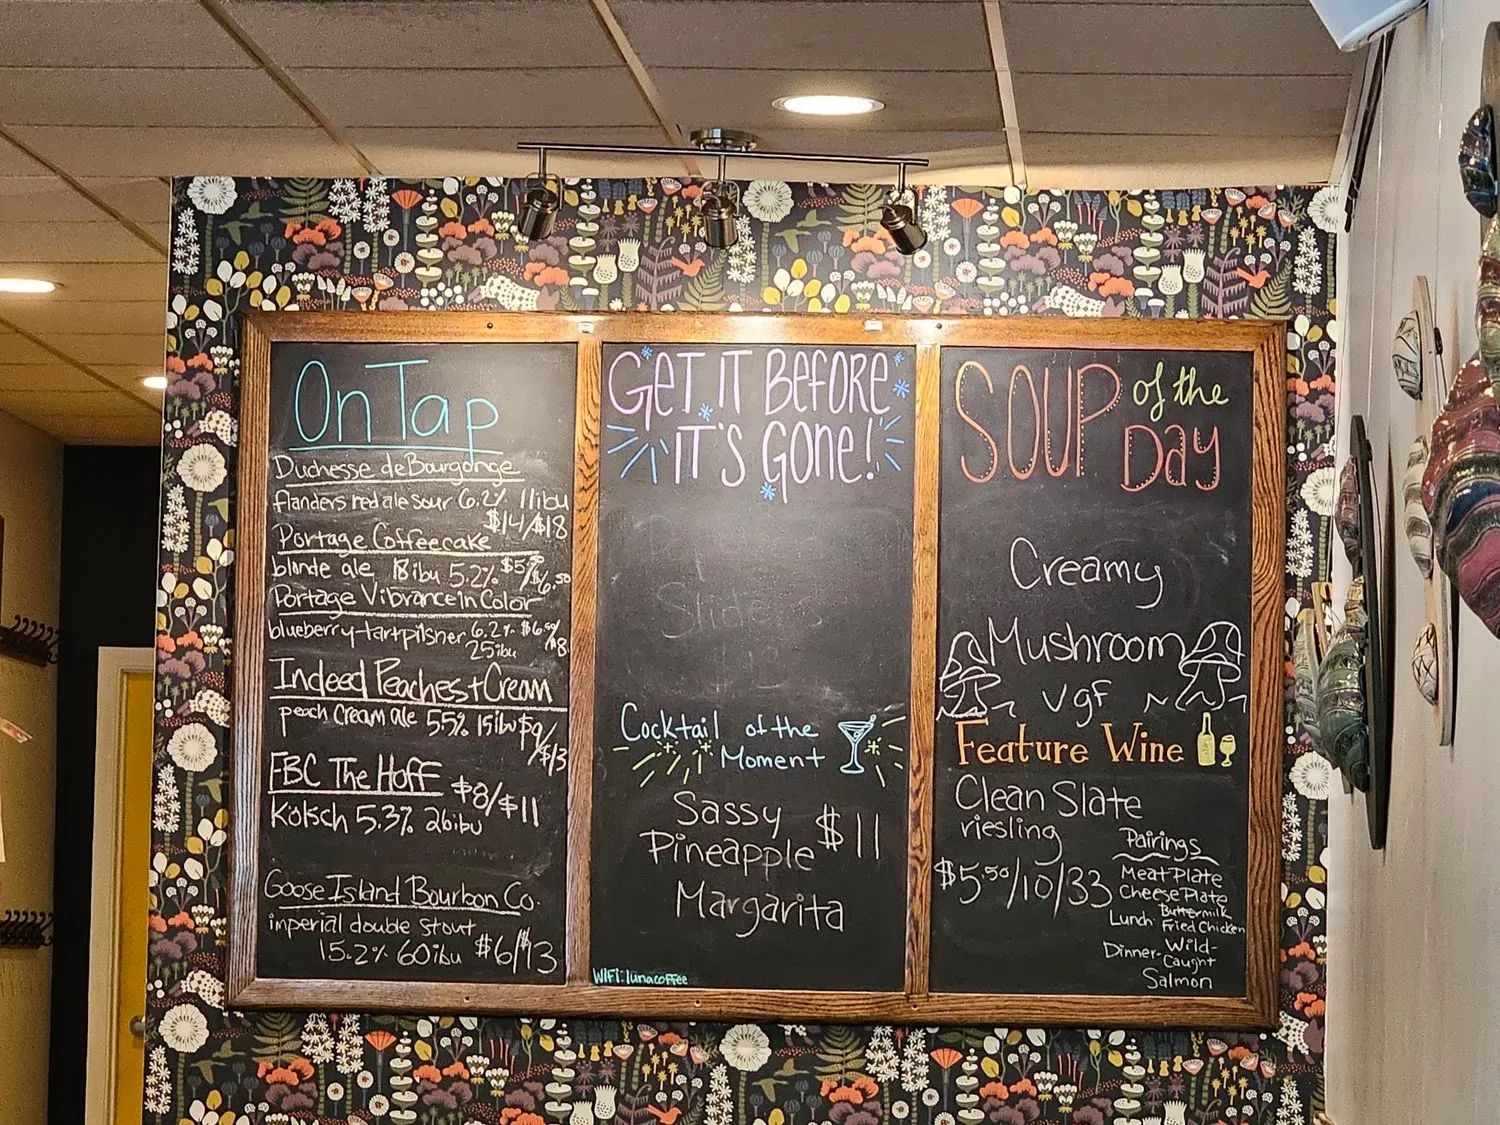 On Tap
Duchesse de Bourgonge
flanders red ale sour 6.2% 11ibu
$14/$18
Portage Coffeecake
blonde ale 18ibu 5.2% $5/6.50
Portage Vibrance in Color
blueberry-tart pilsner 6.2% $6.50/$8
25ibu
Indeed Peaches + Cream
peach cream ale 5.5% 15ibu $9/$13
EBC The Hoff $8/$11
Kolsch 5.3% 26ibu
Goose Island Bourbon Co.
imperial double stout
15.2% 60ibu $6/13
GET IT BEFORE
IT'S GONE!
Cocktail of the
Moment
Sassy
Pineapple $11
Margarita
WIFI: lunacoffee
SOUP of the
DAY
Creamy
Mushroom
vgf
Feature Wine
Clean Slate
riesling
$5.50/10/33
Pairings
Meat Plate
Cheese Plate
Lunch - Buttermilk
Fried Chicken
Dinner - Wild-
Caught
Salmon